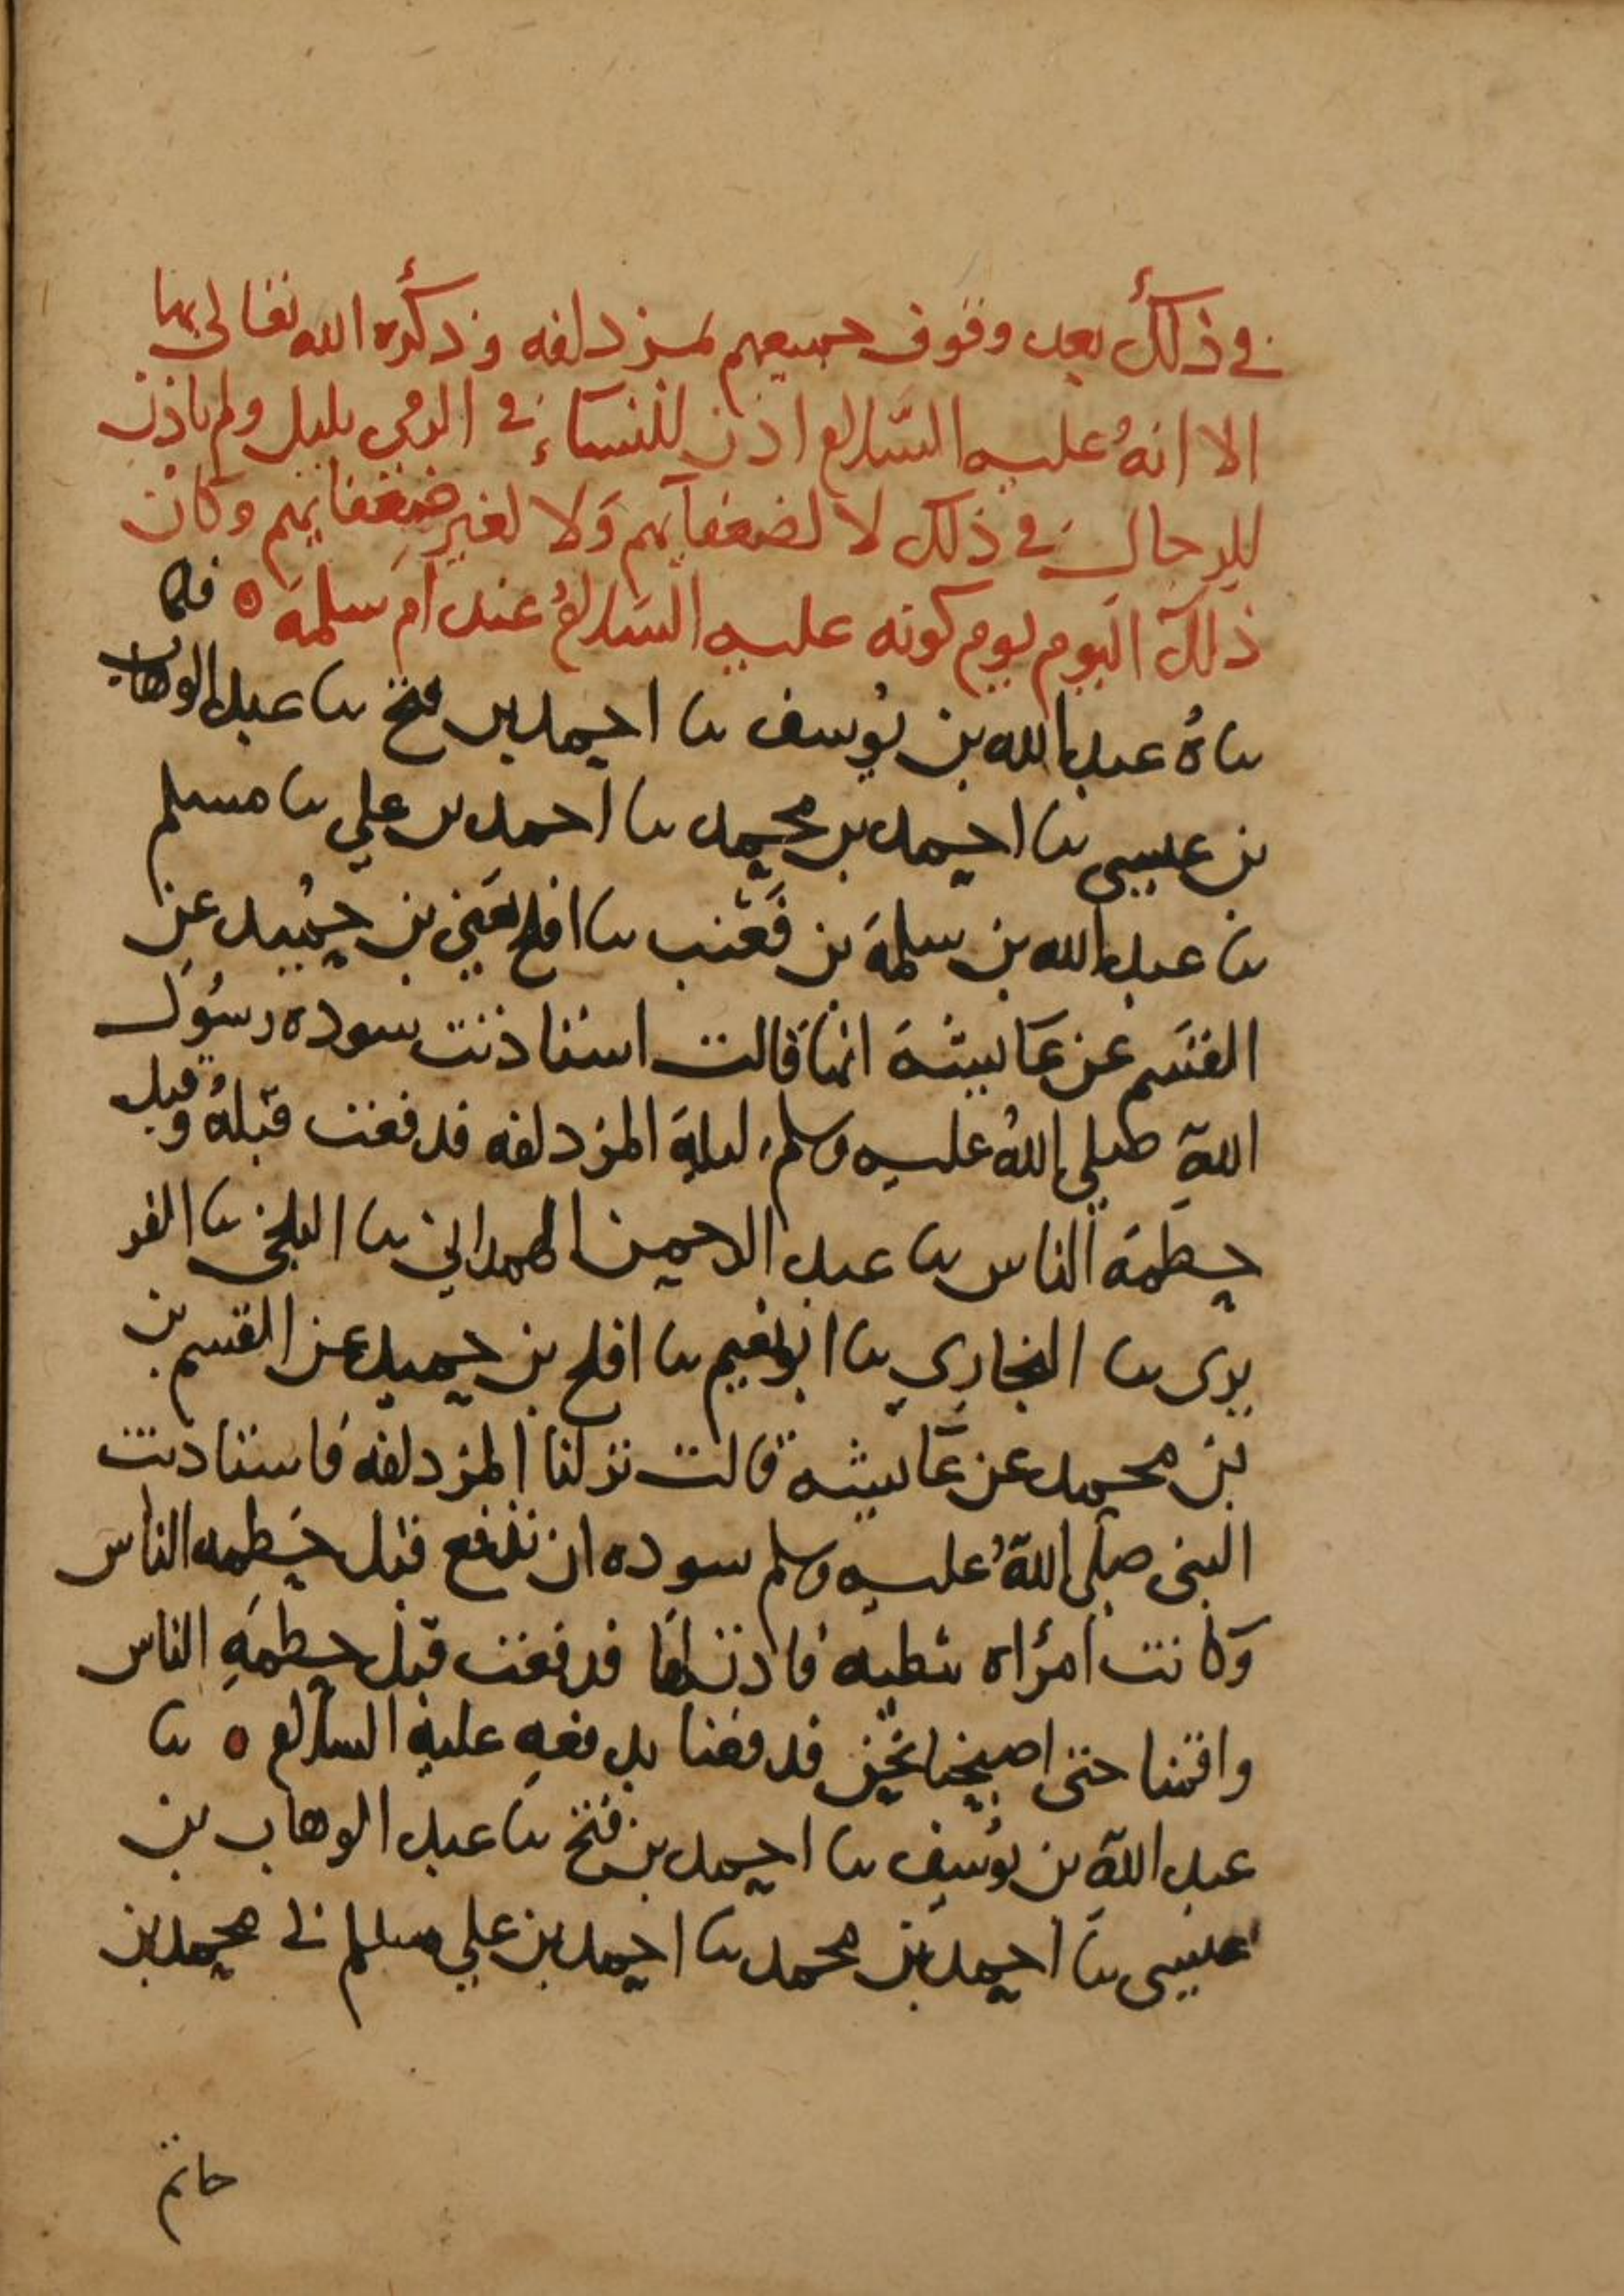 في ذلك بعد وقوف جميعهم بمزدلفه وذكره الله تعالى بها
الا انهُ عليه السَّلام اذن للنسآء في الرمي بليل ولم ياذن
للرجال في ذلك لا لضعفآيهم وَلا لغير ضعفايهم وكان
ذلك اليوم يوم كونه عليه السَّلامُ عند ام سلمَة ه فما
ناهُ عبد الله بن يُوسف نا احمد بن فتح نا عبد الوهاب
بن عيسى نا احمد بن محمد نا احمد بن علي نا مسلم
نا عبد الله بن سلمَة بن قَعْنب نا افلح يَعني بن حُميد عن
القسَم عن عَايشَة انهَا قالت استاذنت سوده رسُول
اللهِ صلى اللهُ عليه وسلم ليلةِ المزدلفه فدفعت قبْلهُ وقبل
حطمة الناس نا عبد الرحمن الهمداني نا البلخي نا الفر
برى نا البخاري نا ابو نعيم نا افلح بن حميد عن القسم بن
بن محمد عن عَايشه قالت نزلنا المزدلفه فاستاذنت
النبى صلى اللهُ عليه وسلم سوده ان تدفع قبل حَطمه الناس
وَكانت امرُاه ثبطيه فاذن لها فدفعت قبل حطمَةِ الناس
واقمنا حتى اصبحنا نحن فدفعنا بدفعهِ عليهِ السلام ه نا
عبد اللهِ بن يُوسِف نا احمد بن فتح نا عبد الوهاب بن
عيسى نا احمد بن محمد نا احمد بن علي مسلم ني محمد بن
حاتم